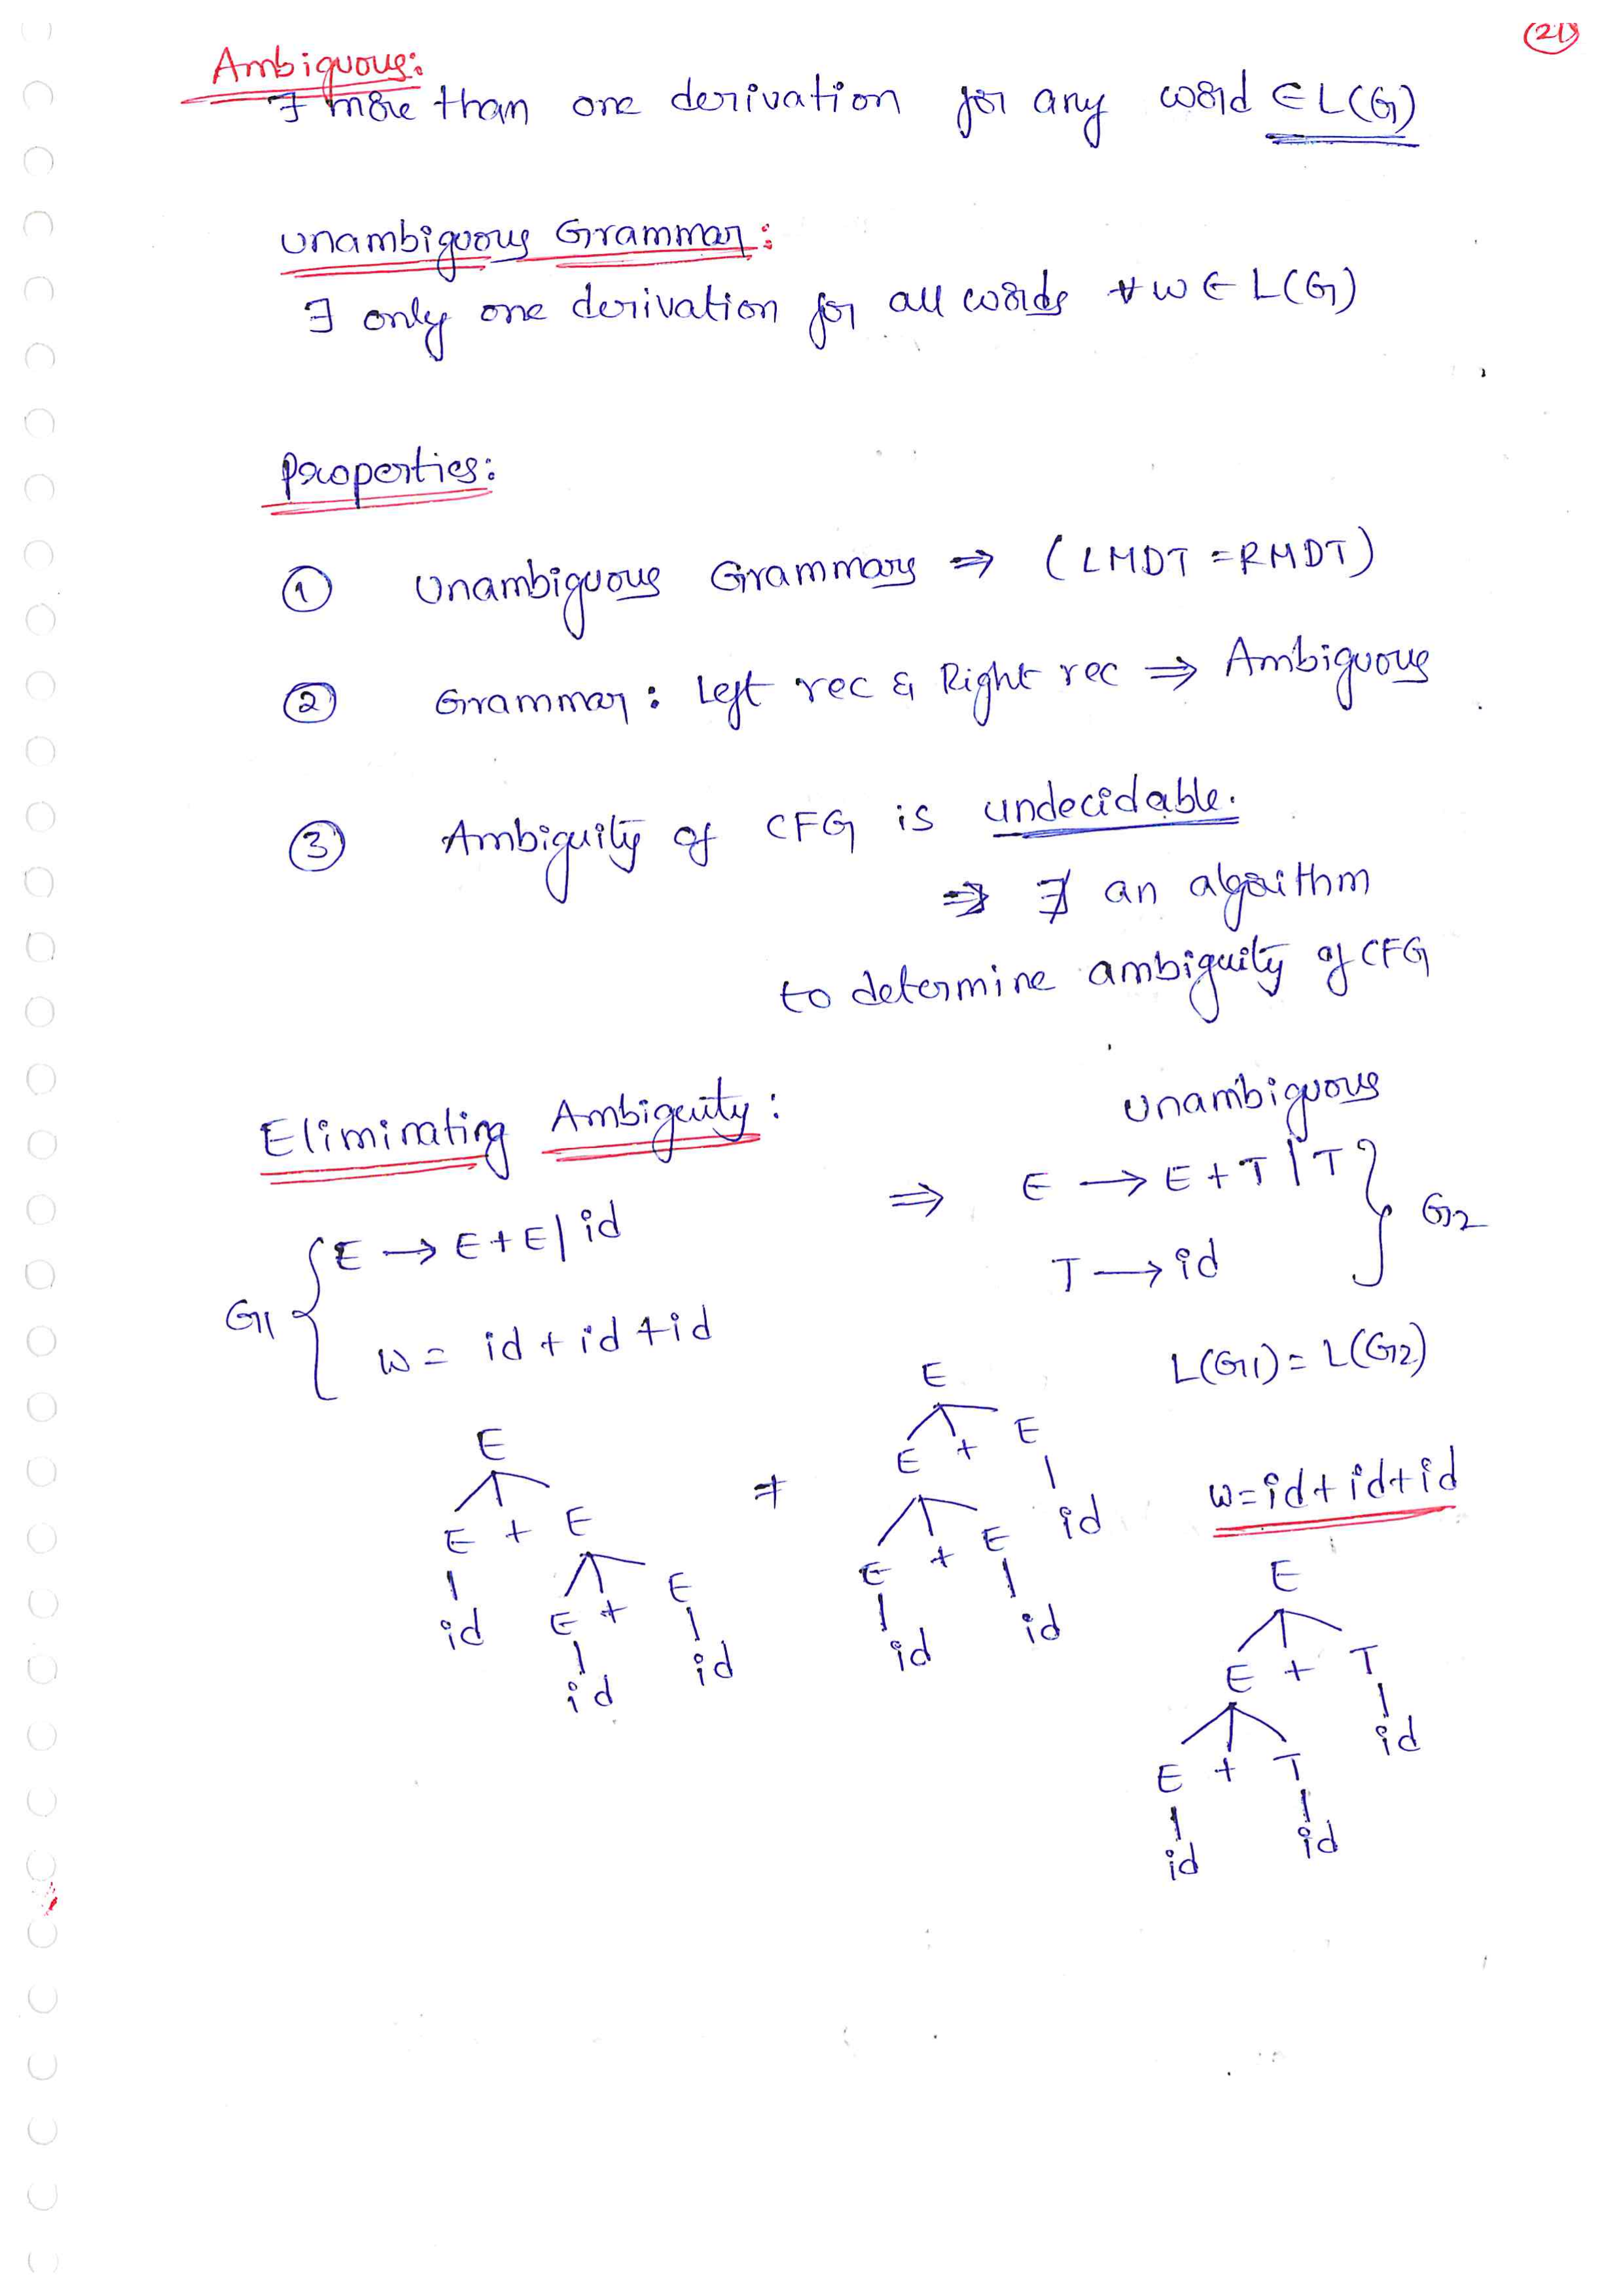 21
Ambiguous:
∃ more than one derivation for any word ∈ L(G)
Unambiguous Grammar:
∃ only one derivation for all words ∀ w ∈ L(G)
Properties:
① Unambiguous Grammars ⇒ (LMDT = RMDT)
② Grammar: Left rec & Right rec ⇒ Ambiguous
③ Ambiguity of CFG is undecidable.
⇒ ∄ an algorithm
to determine ambiguity of CFG
Eliminating Ambiguity:
G1 { E → E+E | id
w = id + id + id
⇒ Unambiguous
E → E+T | T } G2
T → id
L(G1) = L(G2)
E
E + E
id E + E
id id
≠
E
E + E
E + E id
id id
w = id + id + id
E
E + T
E + T id
id id